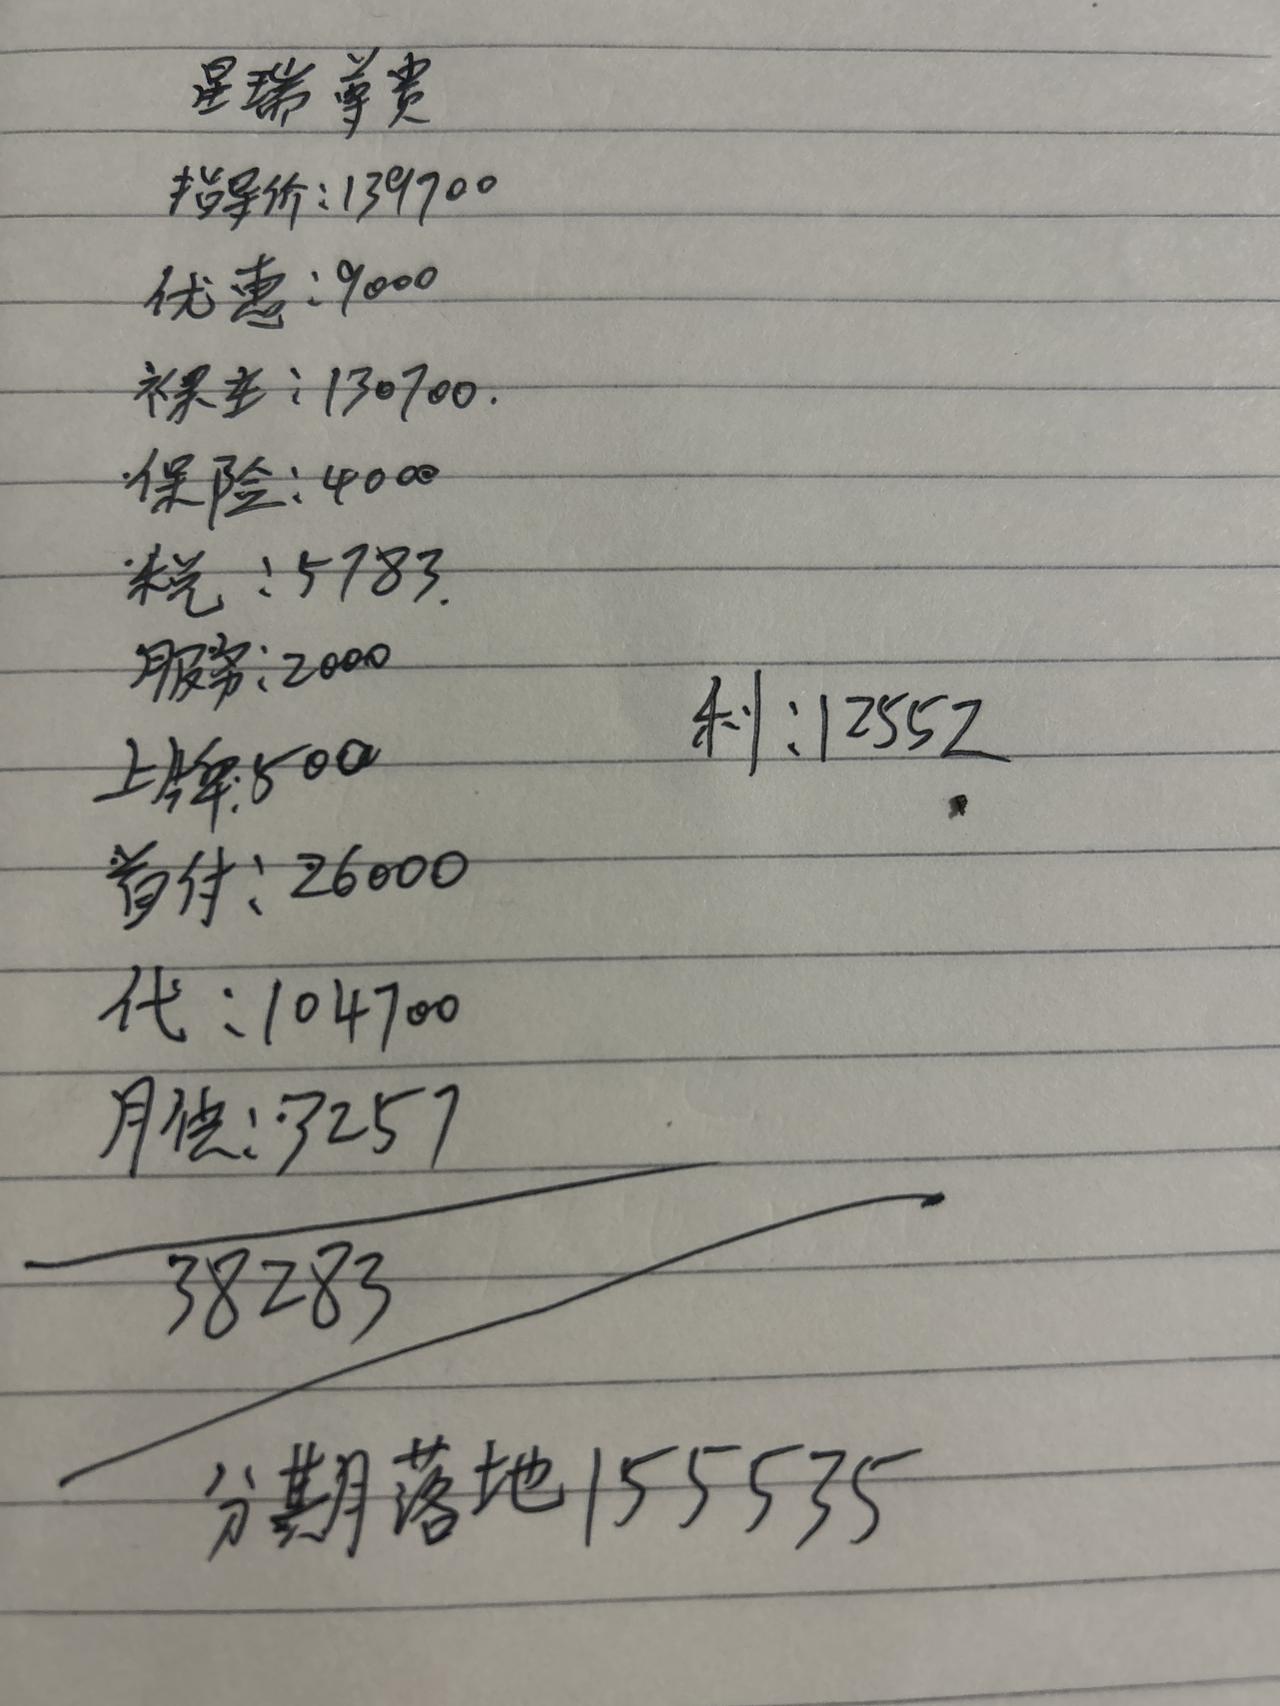 星瑞尊贵
指导价:139700
优惠:9000
裸车:130700.
保险:4000
税:5783.
服务:2000
利:12552
上牌:500
首付:26000
代:104700
月供:3257
38283
分期落地155535